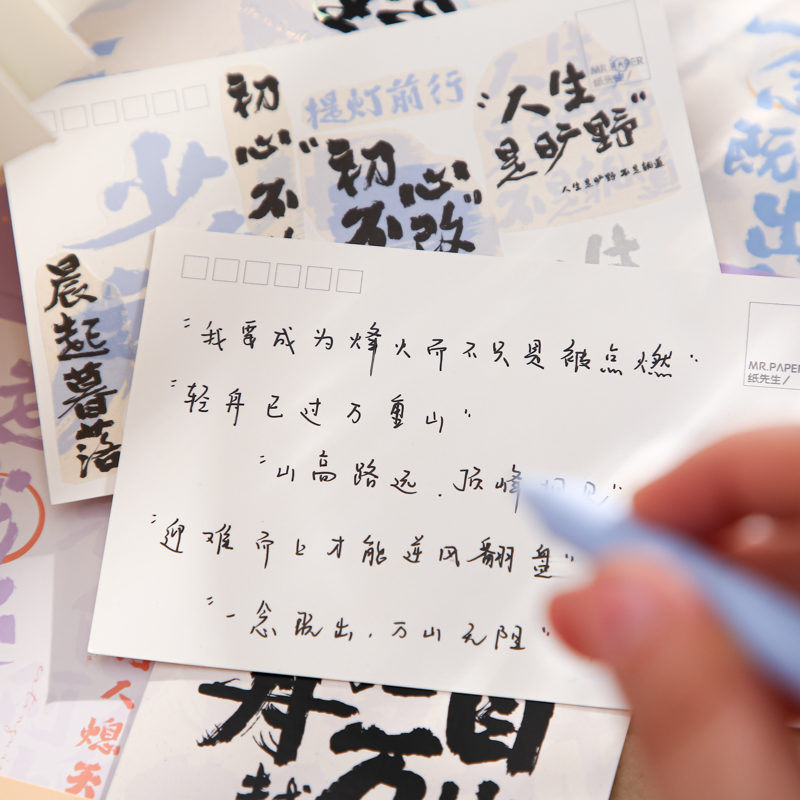 提灯前行
初
心"
不
初心"
不改
"人生
是旷野"
人生是旷野 不是轨道
MR.PAPER
纸先生/
少
晨
起
暮
落
一
念
既
出
"我要成为烽火而不只是被点燃"
"轻舟已过万重山"
"山高路远.
"迎难而上才能逆风翻盘"
"一念既出,万山无阻"
MR.PAPER
纸先生/
人
熄